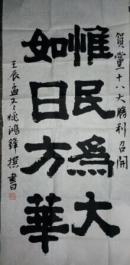 賀黨十八大勝利召開
惟民為大
如日方華
壬辰孟冬鴻鋒撰書